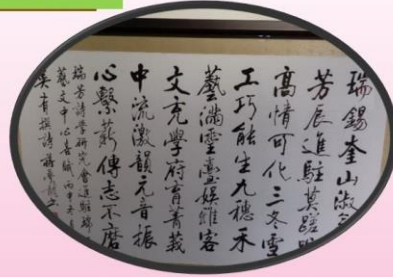 瑞錫奎山淑氣
芳辰進駐莫蹉跎
高情可化三冬雪
工巧能生九穗禾
藝滿靈臺娛雅客
文充學府育菁莪
中流激韻元音振
心繫薪傳志不磨
瑞芳詩學研究會進駐瑞
藝文中心喜賦 丙申
吳 撰詩